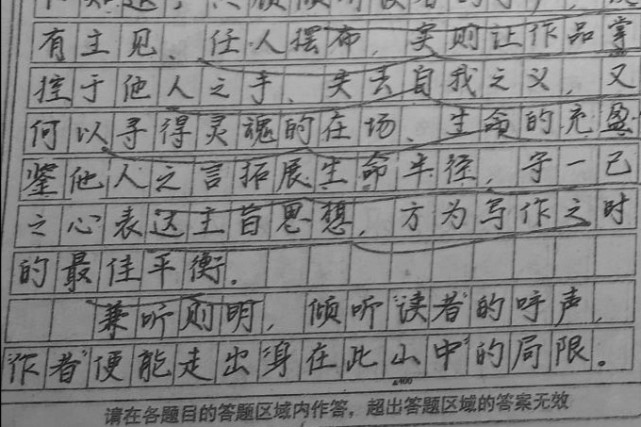 有主见、任人摆布，实则让作品掌
控于他人之手、失去自我之义，又
何以寻得灵魂的在场、生命的充盈
鉴他人之言拓展生命半径，守一己
之心表达主旨思想，方为写作之时
的最佳平衡.
兼听则明，倾听“读者”的呼声，
“作者”便能走出“身在此山中”的局限。
▲800
请在各题目的答题区域内作答，超出答题区域的答案无效